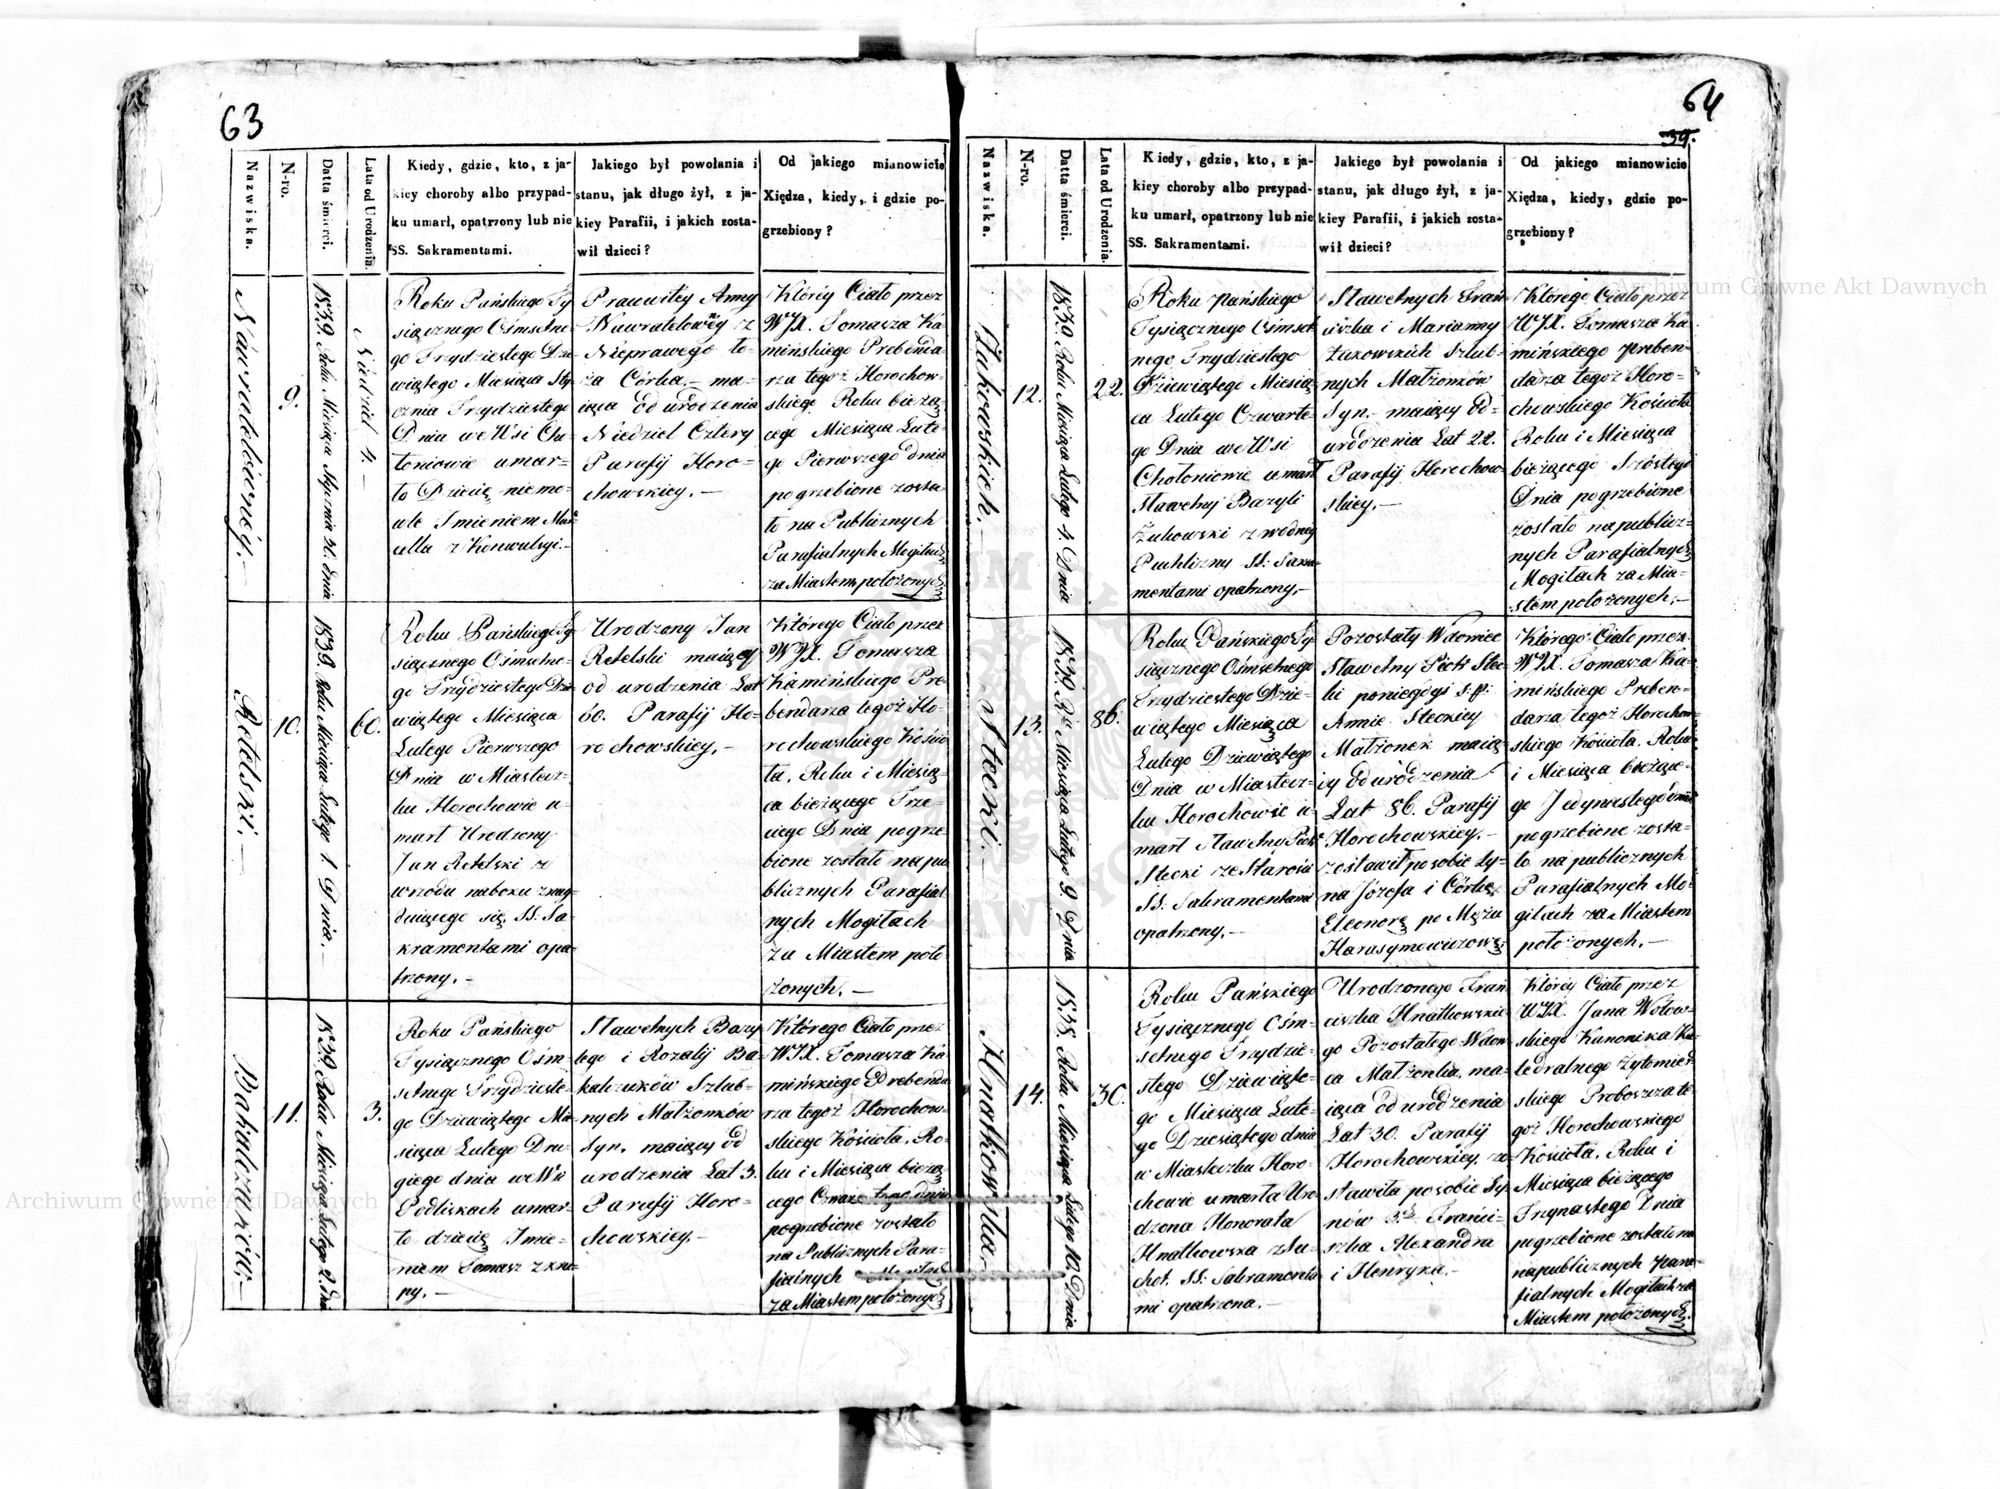 63
Nazwiska.
N-ro.
Datta śmierci.
Lata od Urodzenia.
Kiedy, gdzie, kto, z ja-
kiey choroby albo przypad-
ku umarł, opatrzony lub nie
SS. Sakramentami.
Jakiego był powołania i
stanu, jak długo żył, z ja-
kiey Parafii, i jakich zosta-
wił dzieci?
Od jakiego mianowicie
Xiędza, kiedy, i gdzie po-
grzebiony?
9.
1839. Roku Miesiąca Stycznia 30. dnia
Niedziel 4. —
Roku Pańskiego Ty
siącznego Ośmsetne
go Trzydziestego Dzie
wiątego Miesiąca Sty-
cznia Trzydziestego
Dnia we Wsi Cho-
łoniowie umar-
ło Dziecię niemo-
wle Imieniem
z Konwulsyi. —
Prawitey Anny
z
Nieprawego ło-
ża Córka, — ma-
iąca od urodzenia
Niedziel Cztery
Parafij Horo-
chowskiey. —
Którey Ciało przez
WJX. Tomasza Ka
mińskiego Prebenda-
rza tegoż Horochow-
skiego Roku bieżą-
cego Miesiąca Lute-
go Pierwszego dnia
pogrzebione zosta
ło na Publicznych
Parafialnych Mogiłach
za Miastem położonych
Retelski. —
10.
1839. Roku Miesiąca Lutego 1. Dnia. —
60.
Roku Pańskiego Ty
siącznego Ośmsetne-
go Trzydziestego Dzie
wiątego Miesiąca
Lutego Pierwszego
Dnia w Miastecz-
ku Horochowie u-
marł Urodzony
Jan Retelski z
wrzodu na boku znay
duiącego się, SS: Sa-
kramentami opa-
trzony. —
Urodzony Jan
Retelski maiący
od urodzenia Lat
60. Parafij Ho-
rochowskiey. —
Którego Ciało przez
WJX. Tomasza
Kamińskiego Pre
bendarza tegoż Ho-
rochowskiego Kościo
ła, Roku i Miesią-
ca bieżącego Trze-
ciego Dnia pogrze
bione zostało na pu
blicznych Parafial
nych Mogiłach
za Miastem poło
żonych. —
11.
1839. Roku Miesiąca Lutego 2. dnia
3.
Roku Pańskiego
Tysiącznego Ośm-
setnego Trzydzieste-
go Dziewiątego Mie
siąca Lutego Dru-
giego dnia we Wsi
Podliskach umar-
ło dziecię Imie-
niem Tomasz z kru-
py. —
Sławetnych Bazy
lego i Rozalij Ba-
kalczuków Szlub-
nych Małżonków
Syn, maiący od
urodzenia Lat 3.
Parafij Horo-
chowskiey. —
Którego Ciało przez
WJX. Tomasza Ka
mińskiego Prebenda
rza tegoż Horochow-
skiego Kościoła, Ro-
ku i Miesiąca bieżą-
cego dnia
pogrzebione zostało
na Publicznych Para-
fialnych Mogiłach
za Miastem położonych
64
39.
Nazwiska.
N-ro.
Datta śmierci.
Lata od Urodzenia.
Kiedy, gdzie, kto, z ja-
kiey choroby albo przypad-
ku umarł, opatrzony lub nie
SS. Sakramentami.
Jakiego był powołania i
stanu, jak długo żył, z ja-
kiey Parafii, i jakich zosta-
wił dzieci?
Od jakiego mianowicie
Xiędza, kiedy, gdzie po-
grzebiony?
Żukowskich. —
12.
1839. Roku Miesiąca Lutego 4. Dnia
22.
Roku Pańskiego
Tysiącznego Ośmset
nego Trzydziestego
Dziewiątego Miesią-
ca Lutego Czwarte-
go Dnia we Wsi
Chołoniowie umarł
Sławetny Bazyli
Żukowski z wodney
Puchlizny SS: Sakra-
mentami opatrzony. —
Sławetnych Fran-
ciszka i Marianny
Żukowskich Szlub-
nych Małżonków
Syn. — maiący od-
urodzenia Lat 22.
Parafij Horochow-
skiey. —
Którego Ciało przez
WJX. Tomasza Ka
mińskiego Preben-
darza tegoż Horo-
chowskiego Kościoła
Roku i Miesiąca
bieżącego Szóstego
Dnia pogrzebione
zostało na publicz-
nych Parafialnych
Mogiłach za Mia-
stem położonych. —
Stecki. —
13.
1839. Rku Miesiąca Lutego 9. Dnia
86.
Roku Pańskiego Ty
siącznego Ośmsetnego
Trzydziestego Dzie-
wiątego Miesiąca
Lutego Dziewiątego
Dnia w Miastecz-
ku Horochowie u-
marł Sławetny Piotr
Stecki ze Starości
SS. Sakramentami
opatrzony. —
Pozostały Wdowiec
Sławetny Piotr Stec
ki poniegdyś s.p.
Annie Steckiey
Małżonek maią-
cy od urodzenia
Lat 86. Parafij
Horochowskiey. —
zostawił po sobie Sy-
na Józefa i Córkę
Eleonorę po Mężu
Harasymowiczową
Którego Ciało przez
WJX. Tomasza Ka-
mińskiego Preben-
darza tegoż Horochow-
skiego Kościoła. Roku
i Miesiąca bieżące-
go Jedynastego dnia
pogrzebione zosta-
ło na publicznych
Parafialnych Mo-
giłach za Miastem
położonych. —
Hnatkowska. —
14.
1838. Roku Miesiąca Lutego 10. Dnia
30.
Roku Pańskiego
Tysiącznego Ośm-
setnego Trzydzie-
stego Dziewiąte-
go Miesiąca Lute-
go Dziesiątego dnia
w Miasteczku Horo-
chowie umarła Uro-
dzona Honorata
Hnatkowska z Su-
chot. SS: Sakramenta
mi opatrzona. —
Urodzonego Fran
ciszka Hnatkowskie
go Pozostałego Wdow
ca Małżonka, ma-
iąca od urodzenia
Lat 30. Parafij
Horochowskiey, zo-
stawiła po sobie Sy-
nów 3ch Franci-
szka Alexandra
i Henryka. —
Którey Ciało przez
WJX. Jana Wołow-
skiego Kanonika Ka-
tedralnego Żytomier-
skiego Proboszcza te-
goż Horochowskiego
Kościoła, Roku i
Miesiąca bieżącego
Trzynastego Dnia
pogrzebione zostało na
na publicznych Para-
fialnych Mogiłach za
Miastem położonych.
Archiwum Główne Akt Dawnych
Archiwum Główne Akt Dawnych